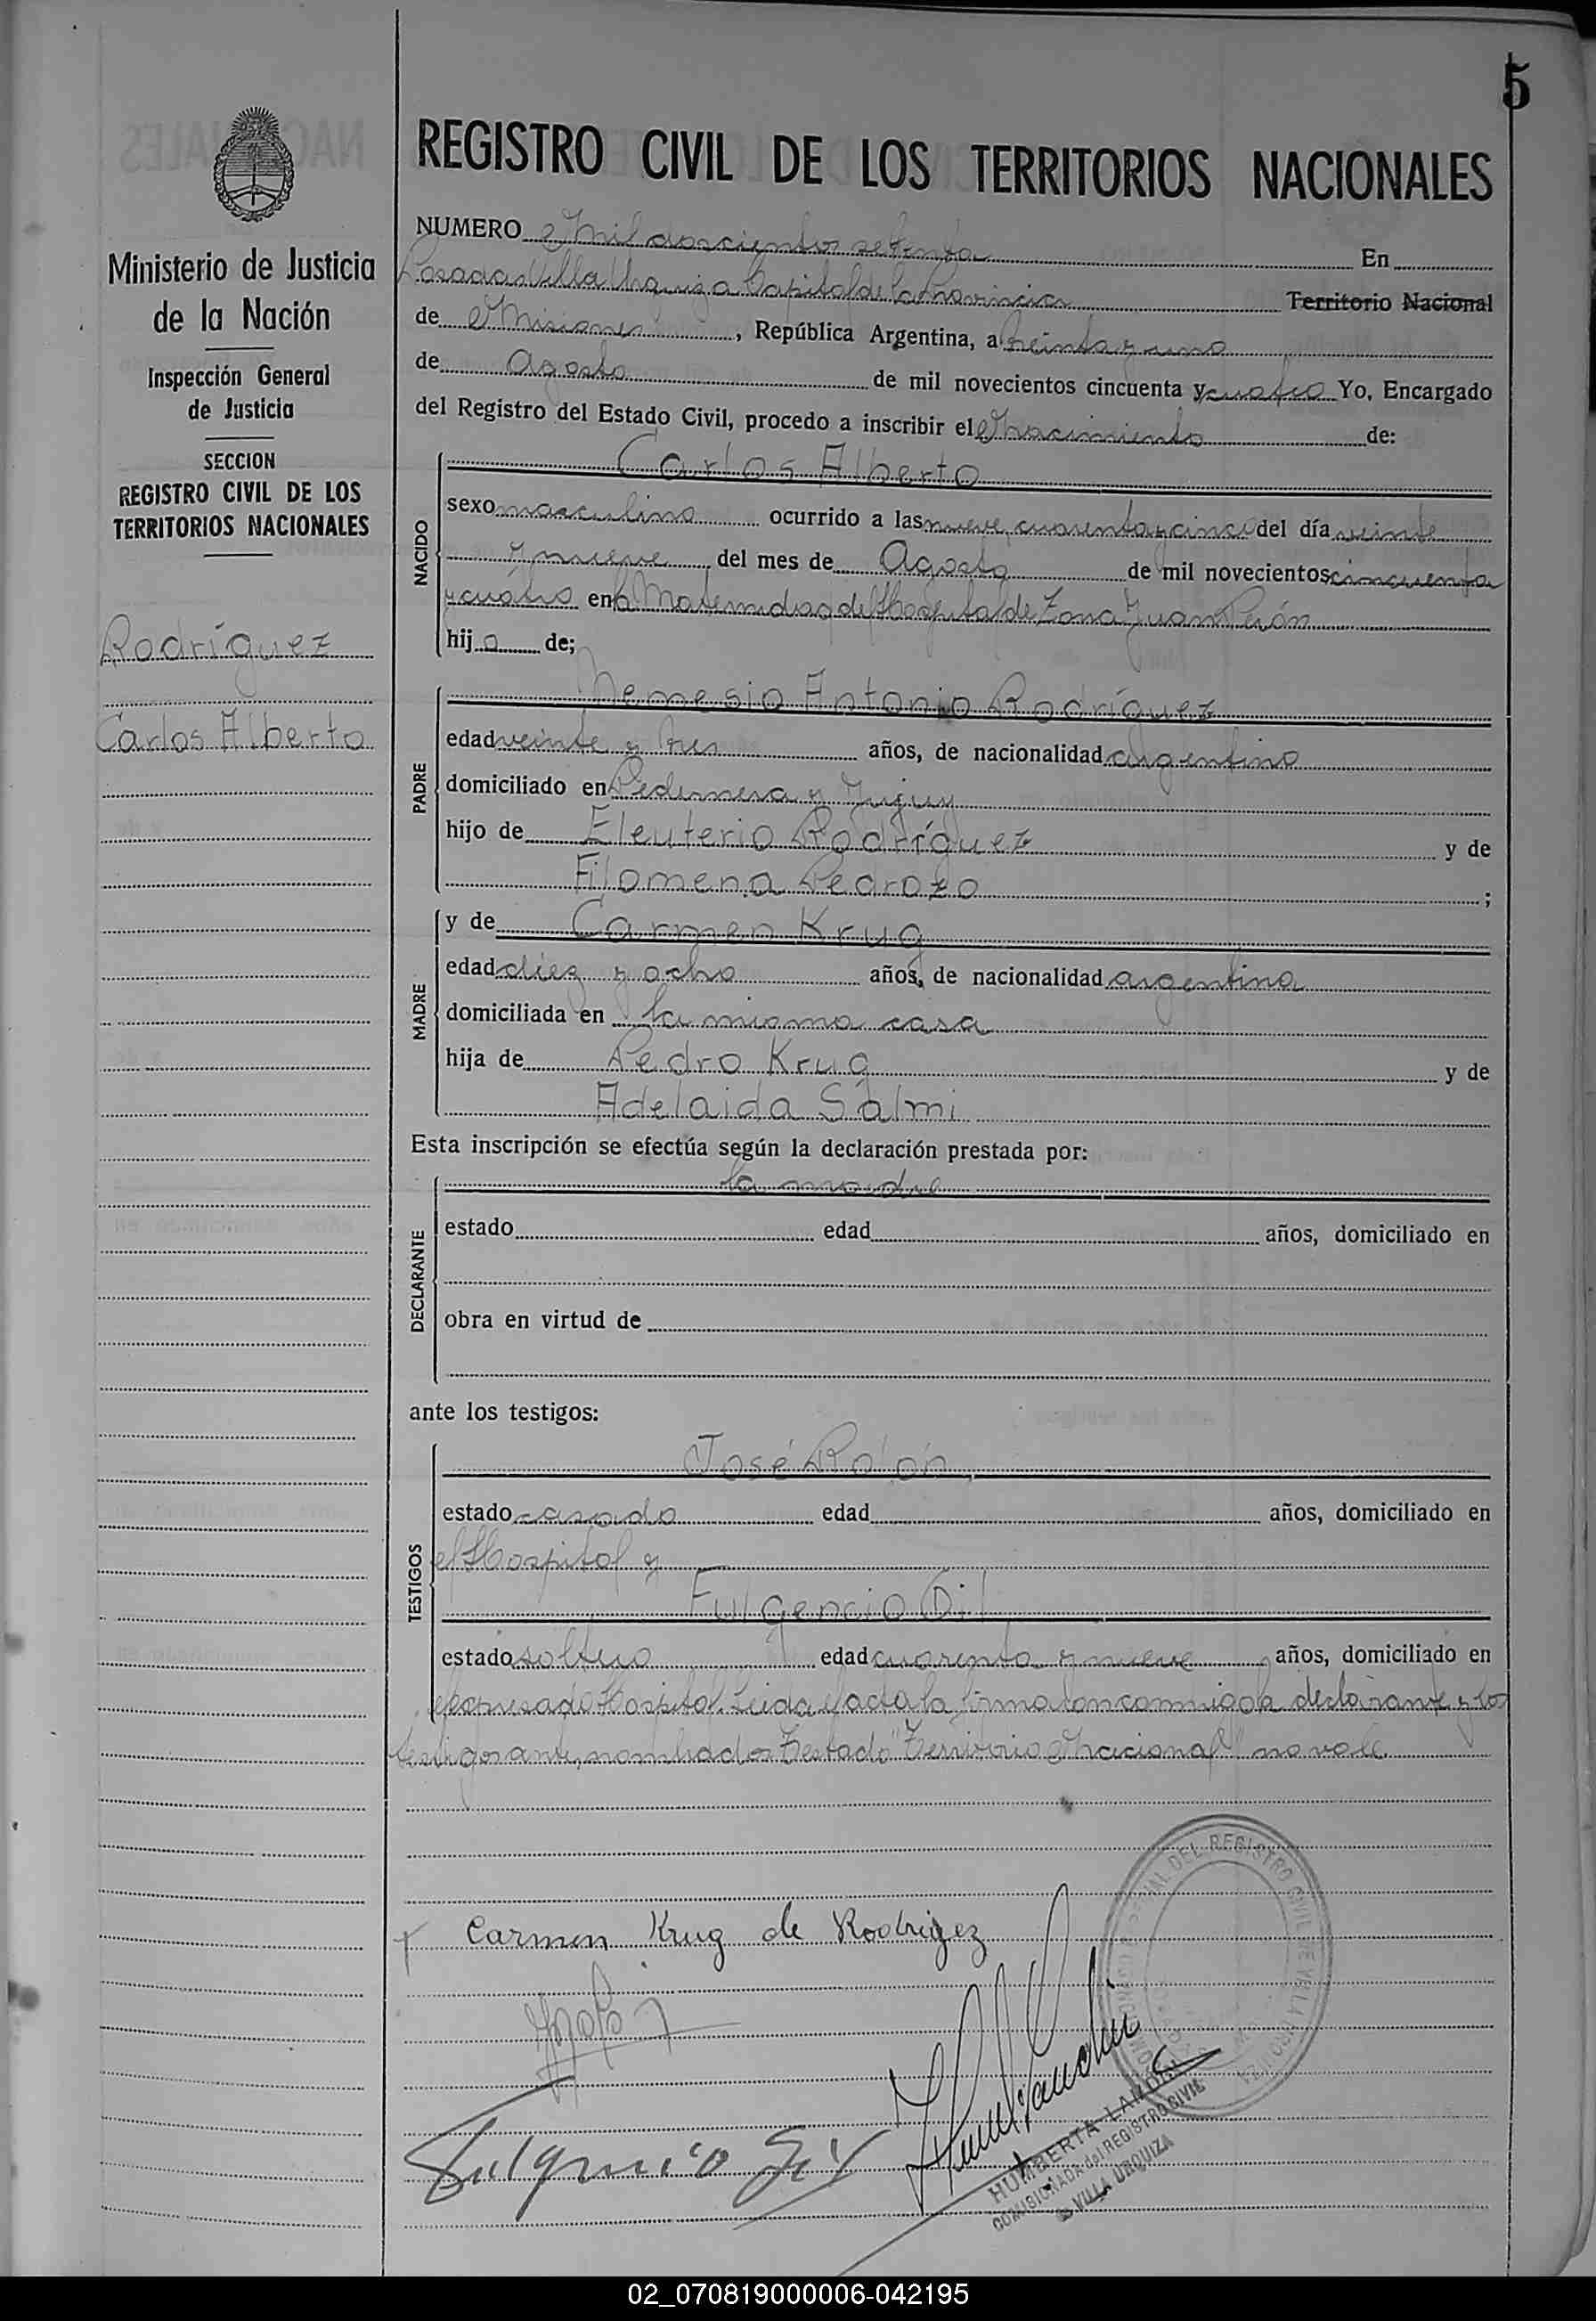 5
REGISTRO CIVIL DE LOS TERRITORIOS NACIONALES
Ministerio de Justicia
de la Nación
Inspección General
de Justicia
SECCION
REGISTRO CIVIL DE LOS
TERRITORIOS NACIONALES
Rodríguez
Carlos Alberto
NUMERO Mil doscientos setenta En
Posadas Villa Urquiza Capital de la Provincia Territorio Nacional
de Misiones, República Argentina, a treinta y uno
de Agosto de mil novecientos cincuenta y cuatro Yo, Encargado
del Registro del Estado Civil, procedo a inscribir el nacimiento de:
NACIDO
Carlos Alberto
sexo masculino ocurrido a las nueve cuarenta y cinco del día veinte
y nueve del mes de Agosto de mil novecientos cincuenta
y cuatro en la Maternidad del Hospital de Zona Juan Perón
hijo de;
PADRE
Nemesio Antonio Rodríguez
edad veinte y tres años, de nacionalidad argentino
domiciliado en Pedernera y Jujuy
hijo de Eleuterio Rodríguez y de
Filomena Pedrozo ;
MADRE
y de Carmen Krug
edad diez y ocho años, de nacionalidad argentina
domiciliada en la misma casa
hija de Pedro Krug y de
Adelaida Salmi
Esta inscripción se efectúa según la declaración prestada por:
DECLARANTE
la madre
estado edad años, domiciliado en
obra en virtud de
ante los testigos:
TESTIGOS
José Rolón
estado casado edad años, domiciliado en
el Hospital y
Fulgencio Gil
estado soltero edad cuarenta y nueve años, domiciliado en
el expresado Hospital. Leida el acta la firma con conmigo la declarante y los
testigos antes nombrados Testado "Territorio Nacional" no vale
Carmen Krug de Rodrigez
Fulgencio Gil
DEL REGISTRO CIVIL DE VILLA URQUIZA
HUMBERTA LANDRI
COMISIONADA del REGISTRO CIVIL
de VILLA URQUIZA
02_070819000006-042195